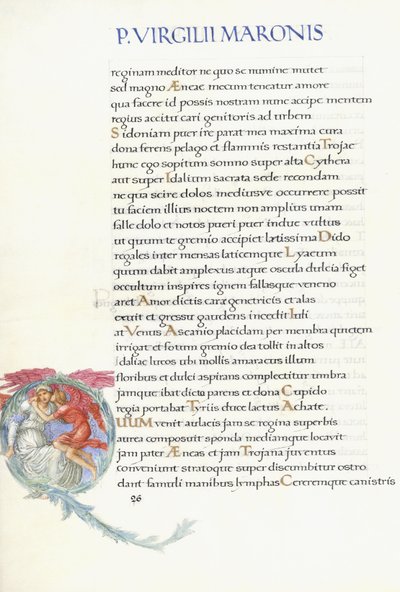 P. VIRGILII MARONIS
reginam meditor ne quo se numine mutet
sed magno Æneae mecum teneatur amore
qua facere id possis nostram nunc accipe mentem
regius accitu cari genitoris ad urbem
Sidoniam puer ire parat mea maxima cura
dona ferens pelago et flammis restantia Trojae
hunc ego sopitum somno super alta Cythera
aut super Idalium sacrata sede recondam
ne qua scire dolos mediusve occurrere possit
tu faciem illius noctem non amplius unam
falle dolo et notos pueri puer indue vultus
ut quum te gremio accipiet lætissima Dido
regales inter mensas laticemque Lyæum
quum dabit amplexus atque oscula dulcia figet
occultum inspires ignem fallasque veneno
Paret Amor dictis caræ genetricis et alas
exuit et gressu gaudens incedit Iuli
at Venus Ascanio placidam per membra quietem
irrigat et fotum gremio dea tollit in altos
Idaliae lucos ubi mollis amaracus illum
floribus et dulci aspirans complectitur umbra
jamque ibat dicto parens et dona Cupido
regia portabat Tyriis duce lætus Achate
QUUM venit aulaeis jam se regina superbis
aurea composuit sponda mediamque locavit
jam pater Æneas et jam Trojana juventus
conveniunt stratoque super discumbitur ostro
dant famuli manibus lymphas Cereremque canistris
26